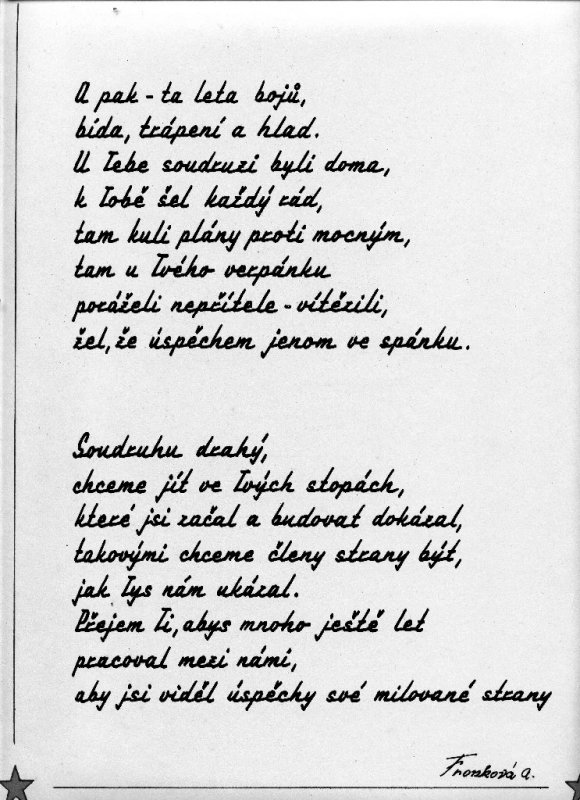 A pak - ta leta bojů,
bída, trápení a hlad.
U Tebe soudruzi byli doma,
k Tobě šel každý rád,
tam kuli plány proti mocným,
tam u Tvého verpánku
poráželi nepřítele - vítězili,
žel, že úspěchem jenom ve spánku.
Soudruhu drahý,
chceme jít ve Tvých stopách,
které jsi začal a budovat dokázal,
takovými chceme členy strany být,
jak Tys nám ukázal.
Přejem Ti, abys mnoho ještě let
pracoval mezi námi,
aby jsi viděl úspěchy své milované strany
Fronková A.